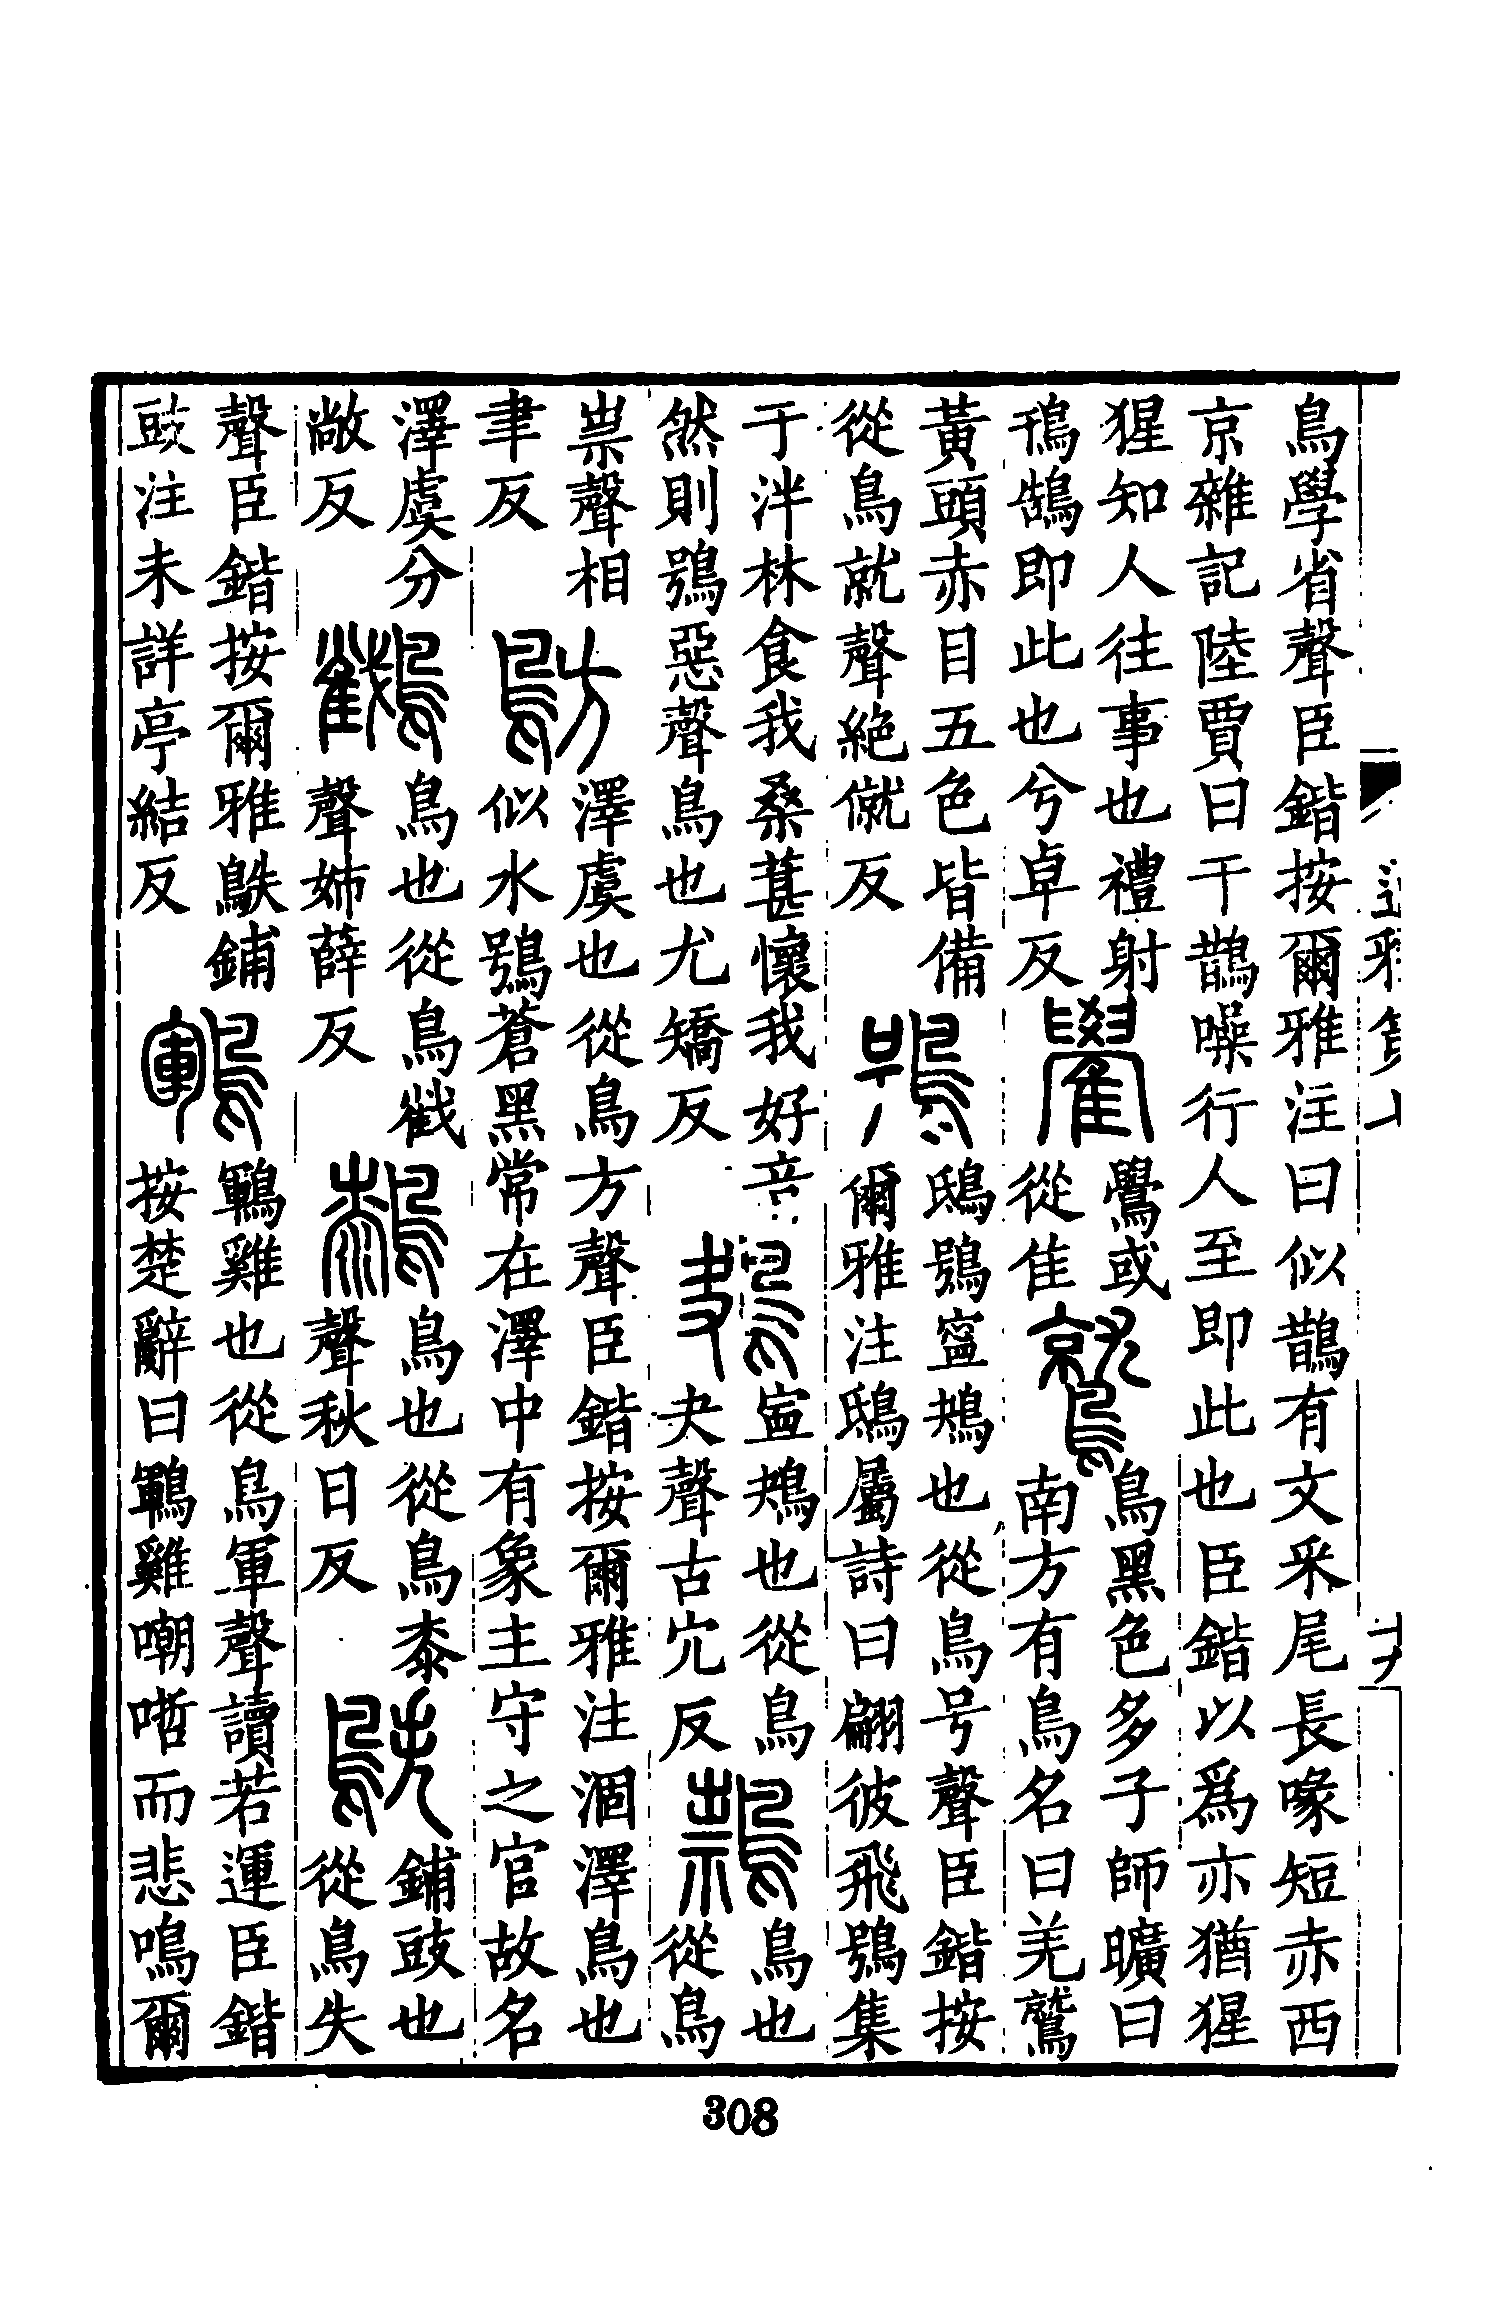 鳥學省聲臣鍇按爾雅注曰似鵲有文釆尾長喙短赤西
京雜記陸賈曰干鵲噪行人至即此也臣鍇以爲亦猶猩
猩知人往事也禮射
鳱鵠即此也兮卓反
雤
鷽或
從隹
鷲
鳥黑色多子師曠曰
南方有鳥名曰羌鷲
黃頭赤目五色皆備
從鳥就聲絶僦反
鴞
鴟鴞寍鴂也從鳥号聲臣鍇按
爾雅注鴟屬詩曰翩彼飛鴞集
于泮林食我桑葚懷我好音
然則鴞惡聲鳥也尤矯反
鴂
寍鴂也從鳥
夬聲古穴反
鳥也
從鳥
祟聲相
聿反
鴋
澤虞也從鳥方聲臣鍇按爾雅注涸澤鳥也
似水鴞蒼黑常在澤中有象主守之官故名
澤虞分
敞反
鳥也從鳥截
聲姊薛反
鳥也從鳥桼
聲秋日反
鴩
鋪豉也
從鳥失
聲臣鍇按爾雅鴩鋪
豉注未詳亭結反
鶤
鶤雞也從鳥軍聲讀若運臣鍇
按楚辭曰鶤雞嘲哳而悲鳴爾
308